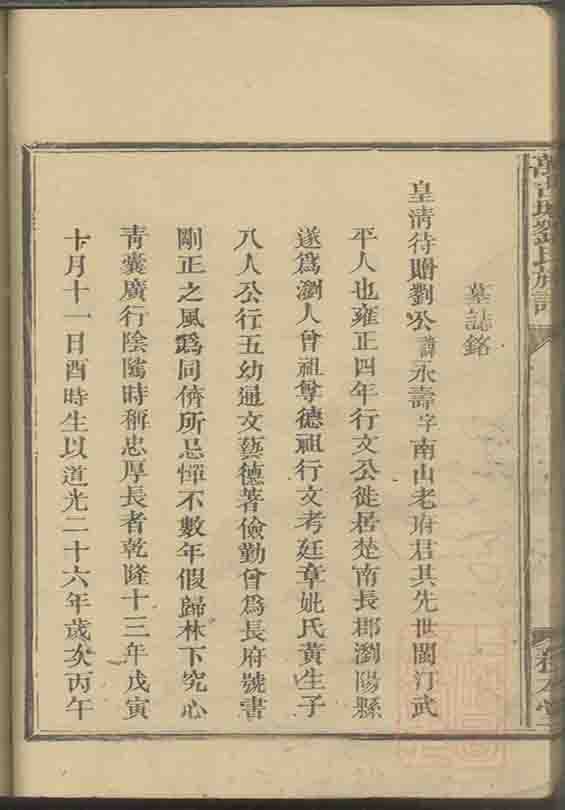 劉氏族譜
墓誌銘
皇清待贈劉公諱永壽字南山老府君其先世閩汀武
平人也雍正四年行文公徙居楚南長郡瀏陽縣
遂爲瀏人曾祖尊德祖行文考廷章妣氏黃生子
八人公行五幼通文藝德著儉勤曾爲長府號書
剛正之風爲同儕所忌憚不數年假歸林下究心
青囊廣行陰騭時稱忠厚長者乾隆十三年戊寅
十月十一日酉時生以道光二十六年歲次丙午